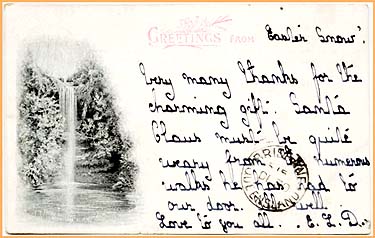 GREETINGS FROM
"Easter Snow".
Very many thanks for the
charming gift. Santa
Claus must be quite
weary from numerous
walks he has had to
our door. All well.
Love to you all. E.L.D.